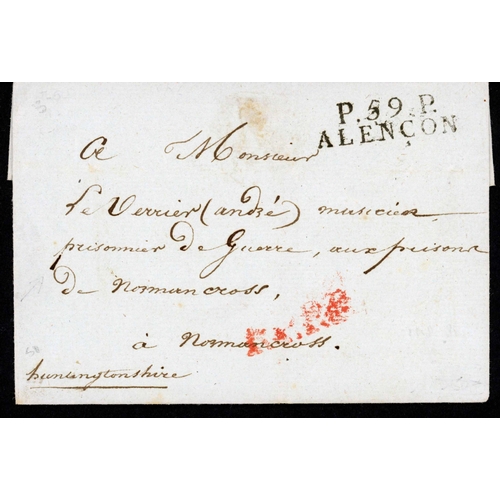 P.59.P.
ALENÇON
A Monsieur
Le Verrier (andré) musicien
prisonnier de Guerre, aux prisons
de Normancross,
à Normancross.
huntingtonshire